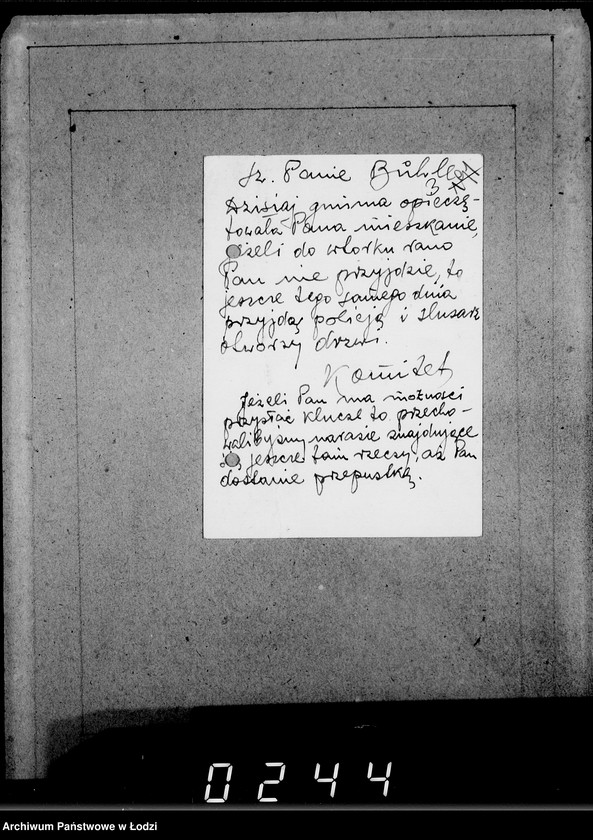 Sz. Panie Bühler
3
Dzisiaj gmina opieczę-
towała Pana mieszkanie,
jeżeli do wtorku rano
Pan nie przyjdzie, to
jeszcze tego samego dnia
przyjdą policją i slusarz
otworzy drzwi.
Komitet
Jeżeli Pan ma możności
przysłać klucze to przecho-
walibyśmy narasie znajdujące
się jeszcze tam rzeczy, aż Pan
dostanie przepustkę.
0244
Archiwum Państwowe w Łodzi